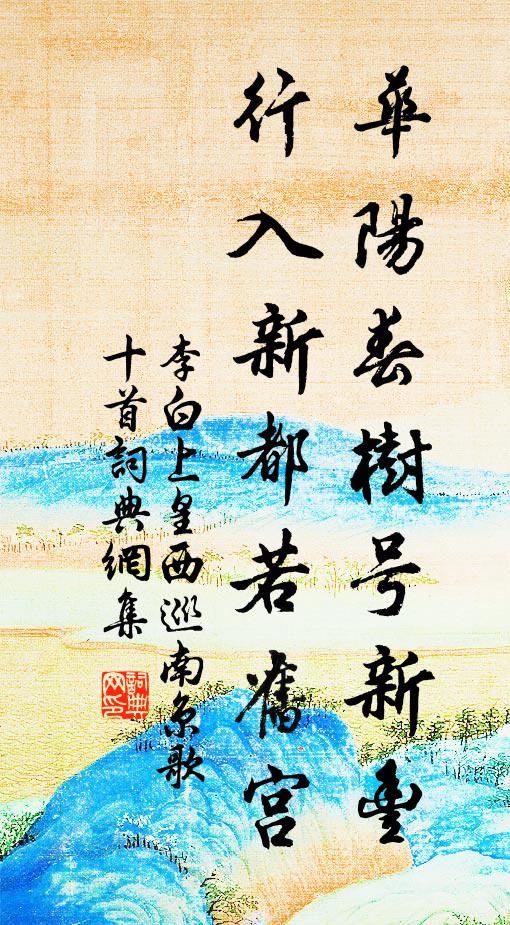 華陽春樹号新豐
行入新都若舊宮
李白上皇西巡南京歌
十首詞典網集
詞典網印